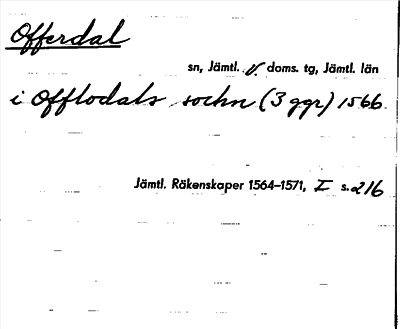 Offerdal
sn, Jämtl. V. doms. tg, Jämtl. län
i Offlodals sochn (3 ggr) 1566.
Jämtl. Räkenskaper 1564–1571, I s. 216